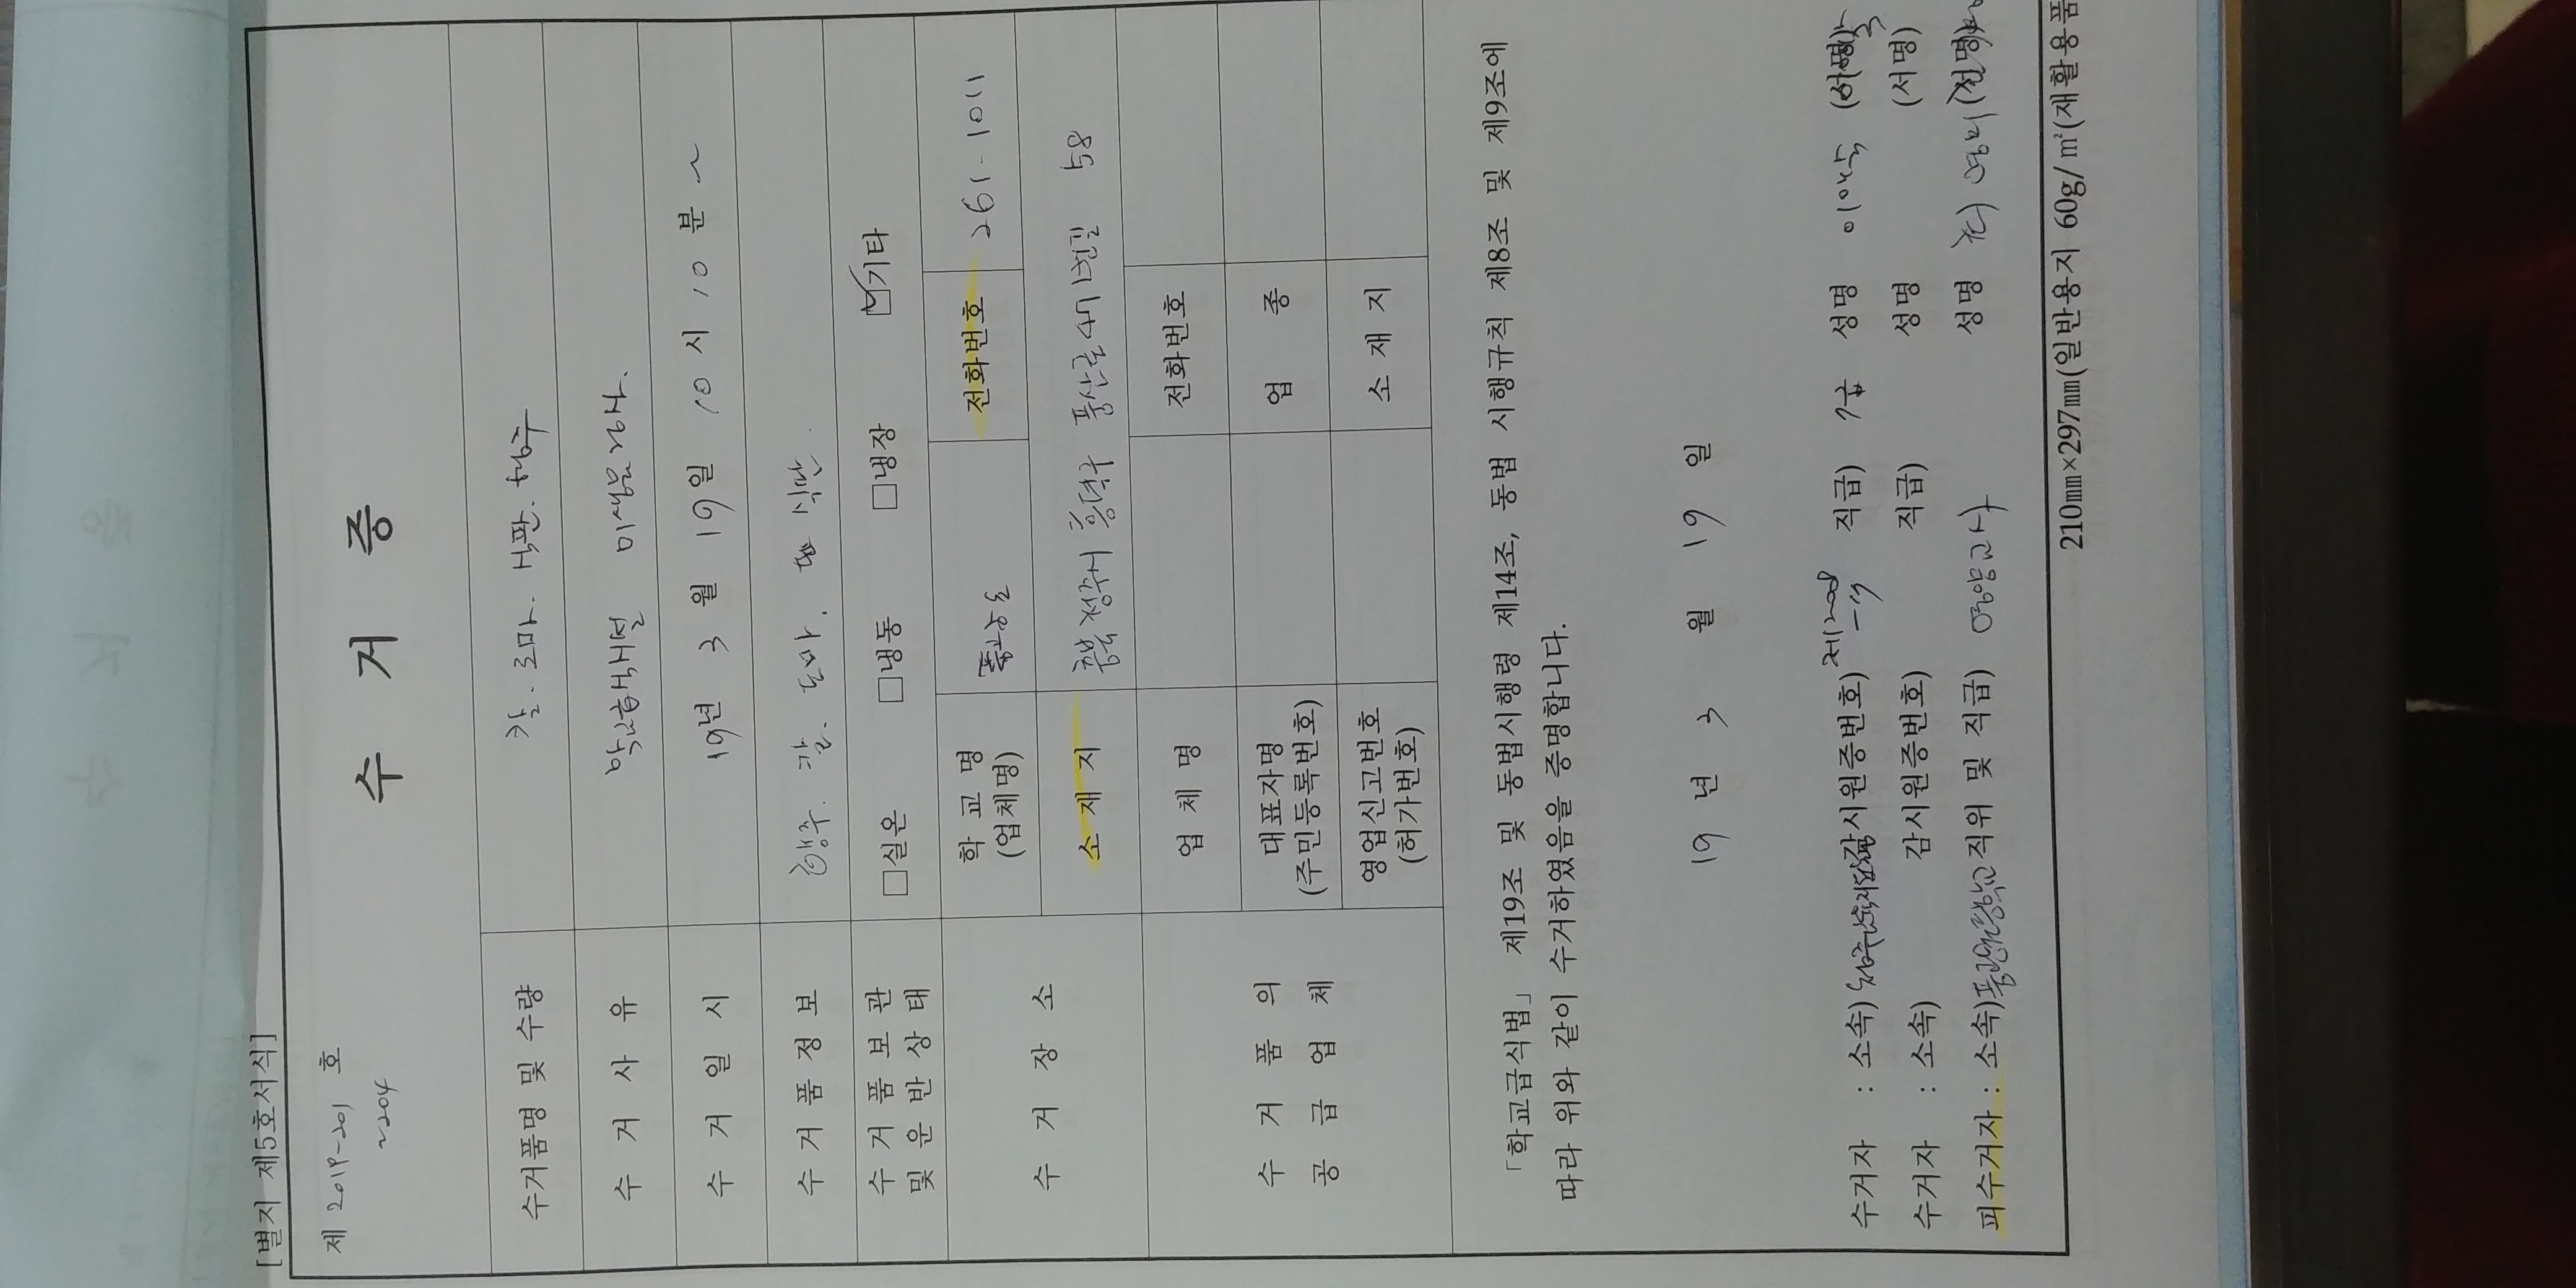 [별지 제5호서식]
제 2019-201 호
~204
수 거 증
수거품명 및 수량 칼. 도마. 식판. 행주
수 거 사 유 학교급식시설 미생물검사.
수 거 일 시 19년 3 월 19일 10 시 10 분 ~
수 거 품 정 보 행주. 칼. 도마. 식판.
수 거 품 보 관 및 운 반 상 태 □실온 □냉동 □냉장 ☑기타
수 거 장 소
학 교 명 (업체명) 전화번호 261-1011
소 재 지 충북 청주시 흥덕구 풍산로 58
수 거 품 의 공 급 업 체
업 체 명 전화번호
대표자명 (주민등록번호) 업 종
영업신고번호 (허가번호) 소 재 지
「학교급식법」 제19조 및 동법시행령 제14조, 동법 시행규칙 제8조 및 제9조에
따라 위와 같이 수거하였음을 증명합니다.
19 년 3 월 19 일
수거자 : 소속) 감시원증번호) 직급) 7급 성명 (서명)
수거자 : 소속) 감시원증번호) 직급) 성명 (서명)
피수거자 : 소속) 직위 및 직급) 영양교사 성명 (서명)
210㎜×297㎜(일반용지 60g/㎡(재활용품